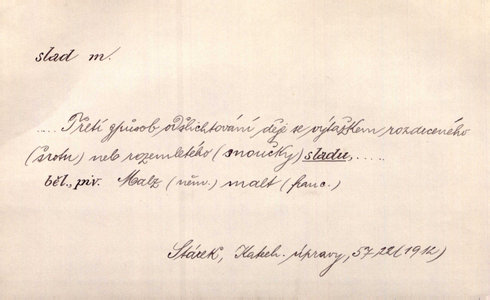 slad m.
..... Třetí způsob odšlichtování děje se výtažkem rozdrceného
(šrotu) neb rozemletého (moučky) sladu, .....
běl., piv. Malz (něm.) malt (franc.)
Stárek, Katech. úpravy, 57 22 (1912)